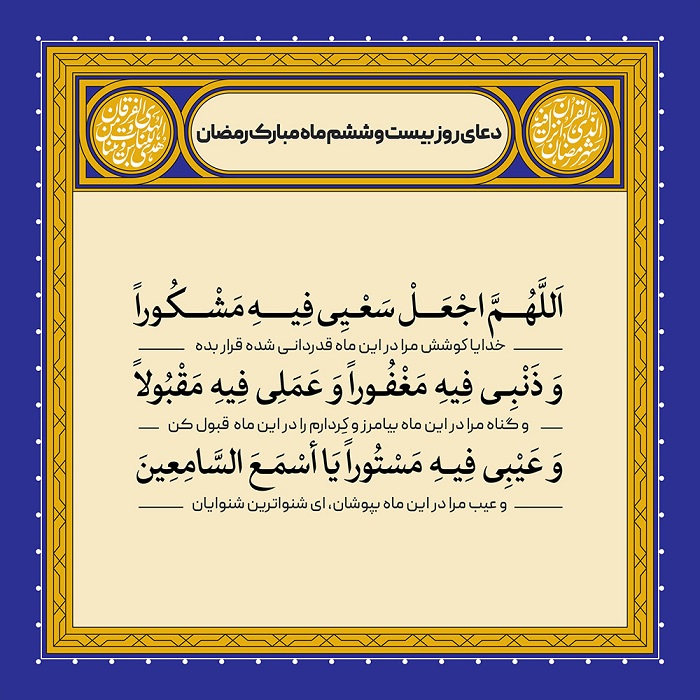 دعای روز بیست و ششم ماه مبارک رمضان
شهر رمضان الذی انزل فیه القرآن
هدی للناس و بینات من الهدی و الفرقان
اَللَّهُمَّ اجْعَلْ سَعْیِی فِیهِ مَشْکُوراً
خدایا کوشش مرا در این ماه قدردانی شده قرار بده
وَ ذَنْبِی فِیهِ مَغْفُوراً وَ عَمَلِی فِیهِ مَقْبُولاً
و گناه مرا در این ماه بیامرز و کِردارم را در این ماه قبول کن
وَ عَیْبِی فِیهِ مَسْتُوراً یَا أسْمَعَ السَّامِعِینَ
و عیب مرا در این ماه بپوشان، ای شنواترین شنوایان